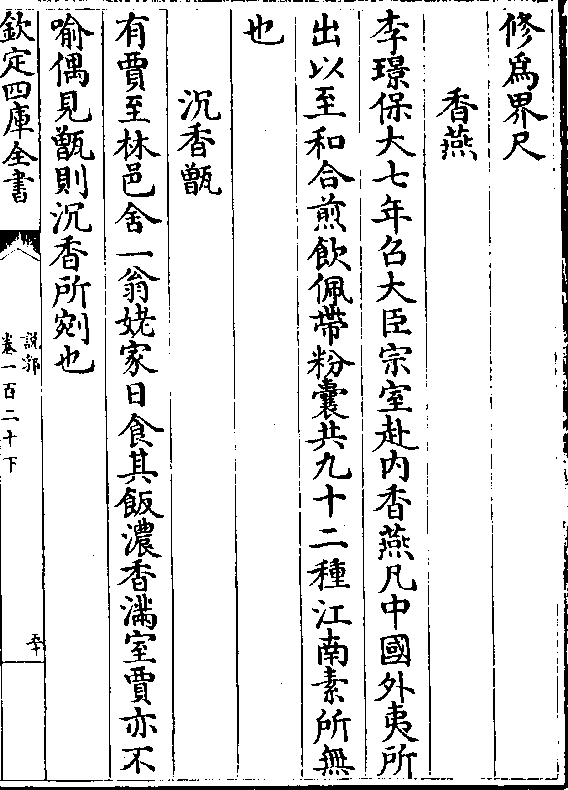 修為界尺
香燕
李璟保大七年召大臣宗室赴内香燕凡中國外夷所
出以至和合煎飲佩帶粉囊共九十二種江南素所無
也
沉香甑
有賈至林邑舍一翁姥家日食其飯濃香滿室賈亦不
喻偶見甑則沉香所剜也
欽定四庫全書
說郛
卷一百二十下